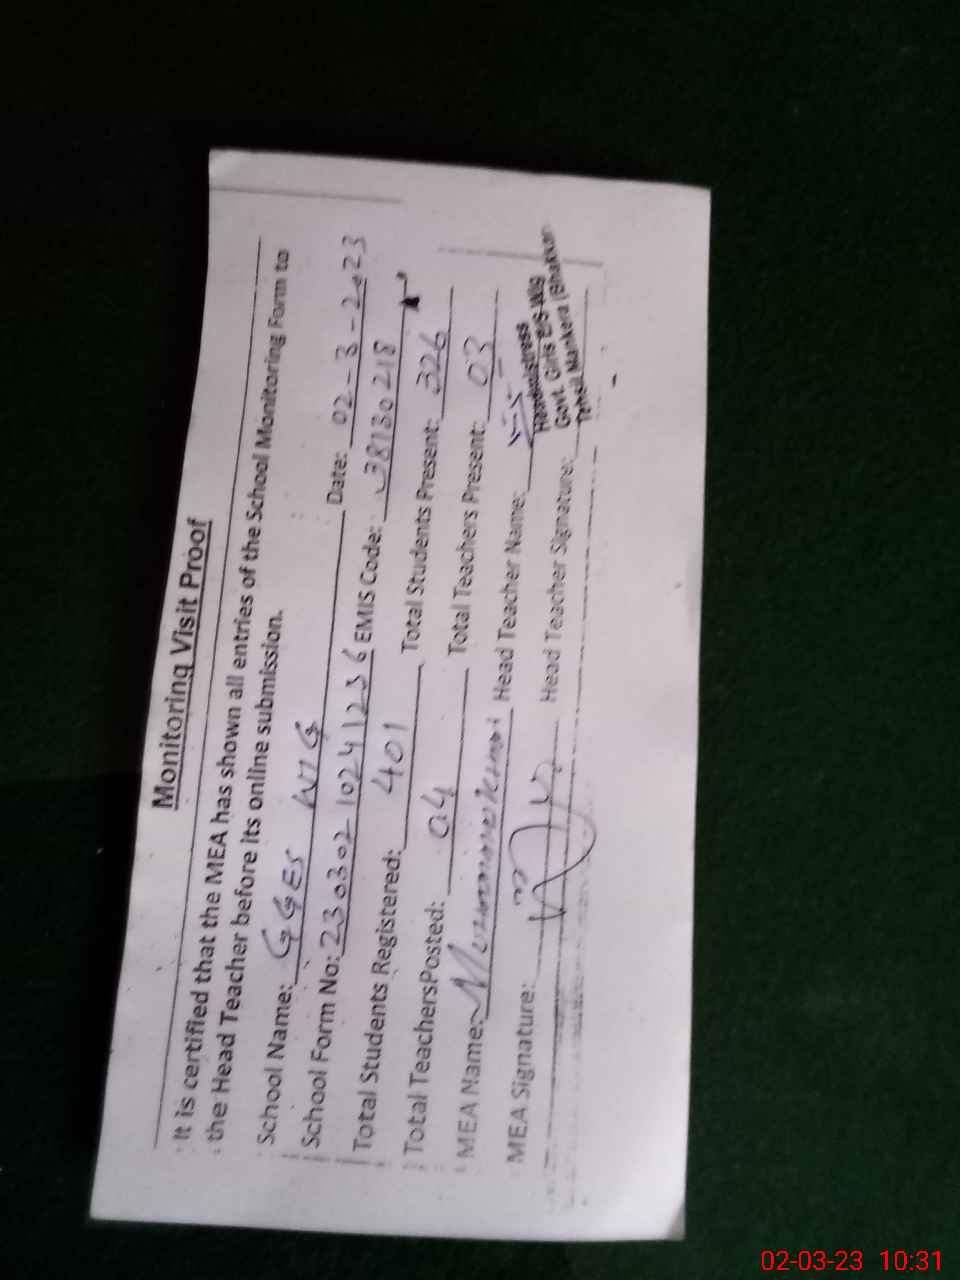 Monitoring Visit Proof
It is certified that the MEA has shown all entries of the School Monitoring Form to
the Head Teacher before its online submission.
School Name: GGES WIG Date: 02-3-2023
School Form No: 230302 1024 1236 EMIS Code: 38130218
Total Students Registered: 401 Total Students Present: 326
Total TeachersPosted: 04 Total Teachers Present: 03
MEA Name: Head Teacher Name:
Headmistress
Govt. Girls E/S Wig
Tehsil Mankera (Bhakkar
MEA Signature: Head Teacher Signature:
02-03-23 10:31